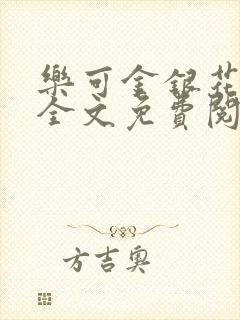 樂可金銀花
全文免費閱
方吉奧